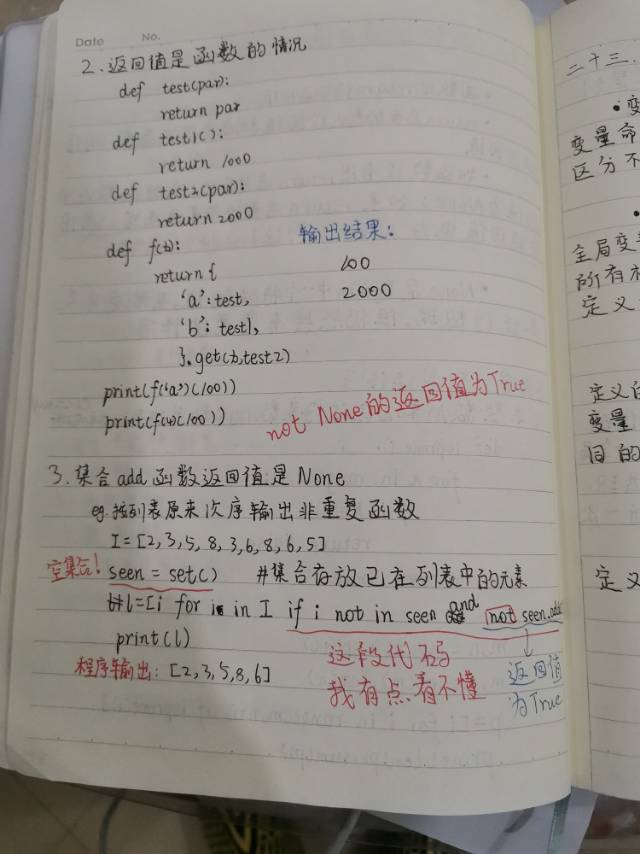 Date No.
2.返回值是函数的情况
def test(par):
return par
def test1():
return 1000
def test2(par):
return 2000
def f(x):
return {
'a':test,
'b':test1,
}.get(x,test2)
print(f('a')(100))
print(f(4)(100))
输出结果:
100
2000
not None的返回值为True
3.集合add函数返回值是None
eg.按列表原来次序输出非重复函数
I=[2,3,5,8,3,6,8,6,5]
空集合!
seen = set() #集合存放已在列表中的元素
l=[i for i in I if i not in seen and not seen.add
print(l)
程序输出:[2,3,5,8,6]
这段代码
我有点看不懂
返回值
为True
二十三.
•变
变量命
区分不
•
全局变
所有
定义
定义的
变量
目的
定义